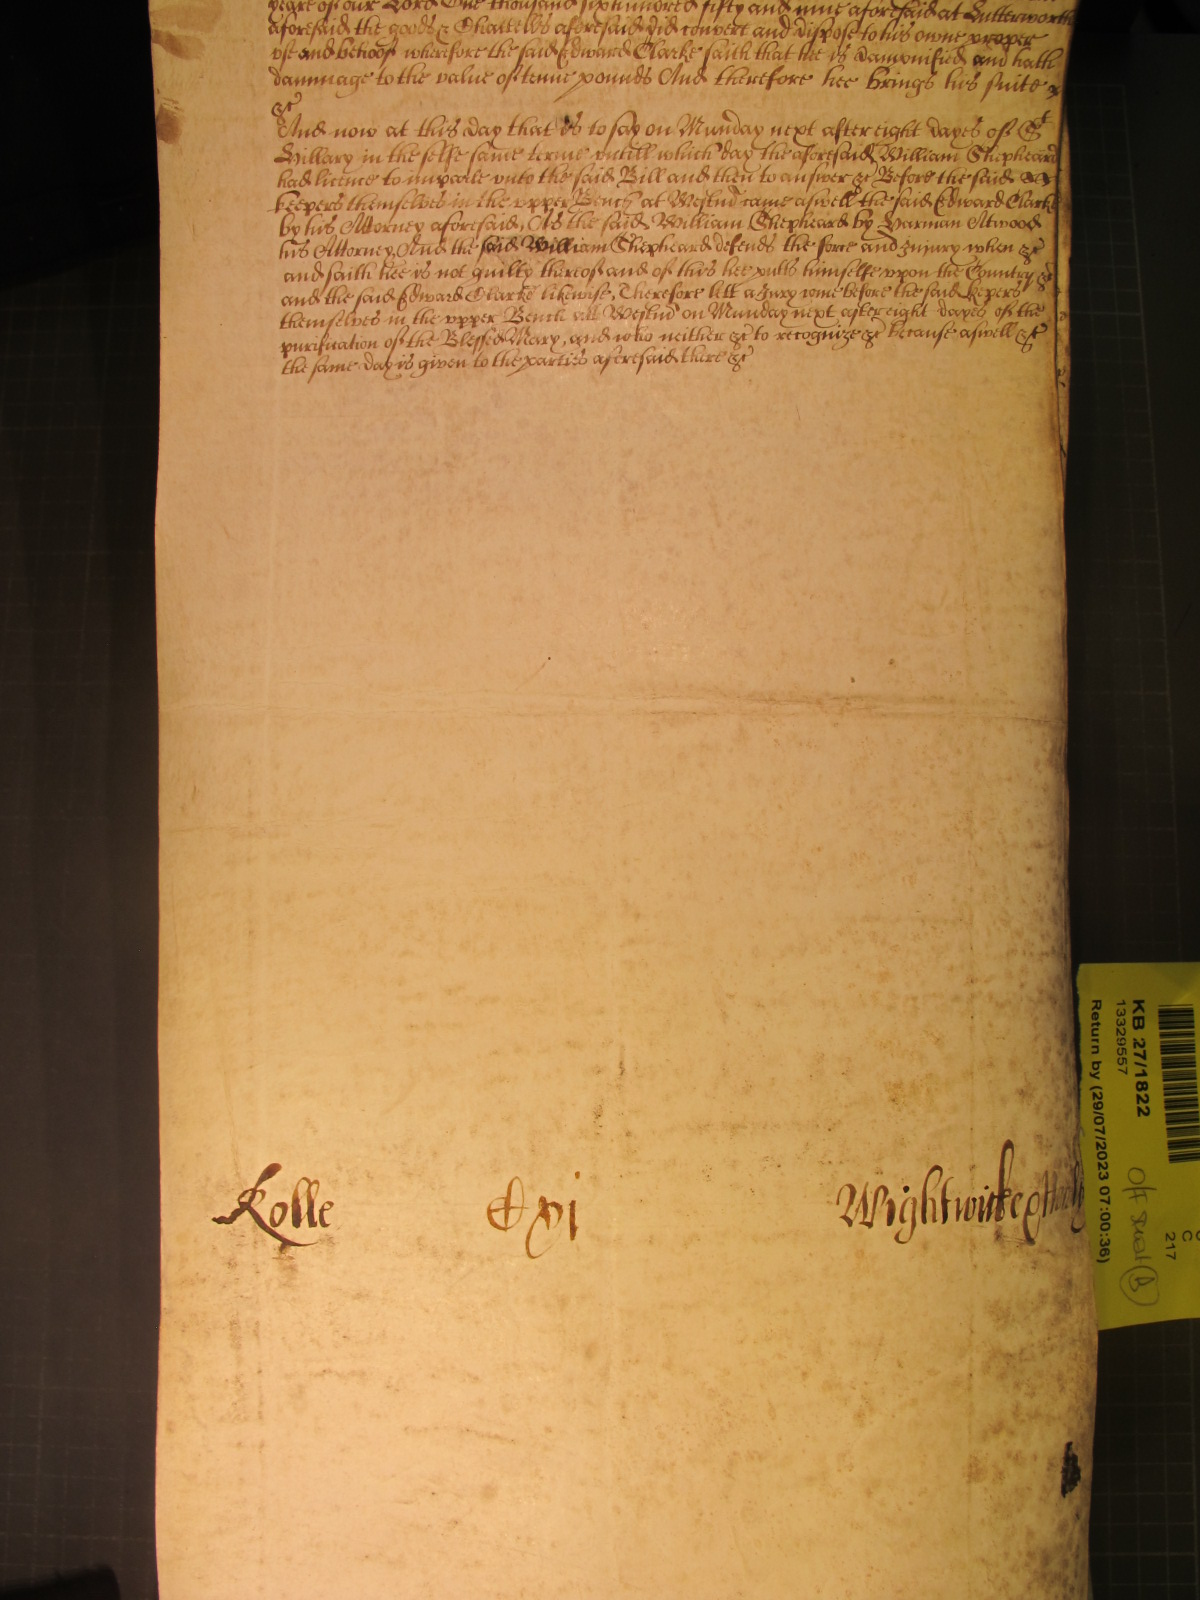 yeare of our Lord One thousand six hundred fifty and nine aforesaid at Lutterworth
aforesaid the goods & Chattells aforesaid did convert and dispose to his owne proper
use and behoof wherefore the said Edward Clarke saith that hee is damnified and hath
dammage to the value of tenne pounds And therefore hee brings his suite
&c
And now at this day that is to say on Munday next after eight dayes of St
Hillary in the selfe same terme untill which day the aforesaid William Shepheard
had licence to imparle unto the said Bill and then to answer &c Before the said
keepers themselves in the upper Bench at Westmr came aswell the said Edward Clarke
by his Attorney aforesaid, As the said William Shepheard by Harman Atwood
his Attorney, And the said William Shepheard defends the force and injury when &c
and saith hee is not guilty thereof and of this hee putts himselfe upon the Country &c
and the said Edward Clarke likewise, Therefore lett a Jury come before the said kepers
themselves in the upper Bench att Westmr on Munday next after eight dayes of the
purification of the Blessed Mary, and who neither &c to recognize &c because aswell &c
the same day is given to the parties aforesaid there &c
Rolle Cxvj Wightwicke
KB 27/1822
13329557
Return by (29/07/2023 07:00:36)
C
217
Off